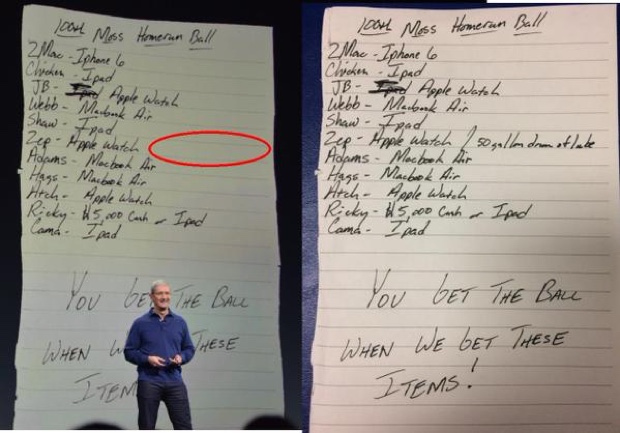 100th Moss Homerun Ball
ZMac - Iphone 6
Chicken - Ipad
JB - Ipad Apple Watch
Webb - Macbook Air
Shaw - Ipad
Zep - Apple Watch
Adams - Macbook Air
Hags - Macbook Air
Atch - Apple Watch
Ricky - $5,000 Cash or Ipad
Cama - Ipad
YOU GET THE BALL
WHEN WE THESE
ITEM
100th Moss Homerun Ball
ZMac - Iphone 6
Chicken - Ipad
JB - Ipad Apple Watch
Webb - Macbook Air
Shaw - Ipad
Zep - Apple Watch / 50 gallon drum of lube
Adams - Macbook Air
Hags - Macbook Air
Atch - Apple Watch
Ricky - $5,000 Cash or Ipad
Cama - Ipad
YOU GET THE BALL
WHEN WE GET THESE
ITEMS!